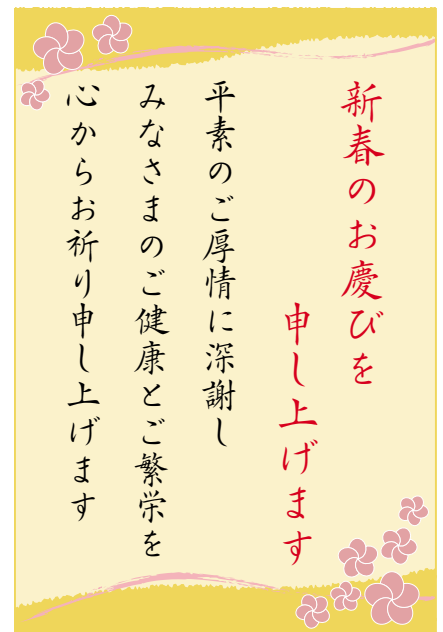 新春のお慶びを
申し上げます
平素のご厚情に深謝し
みなさまのご健康とご繁栄を
心からお祈り申し上げます